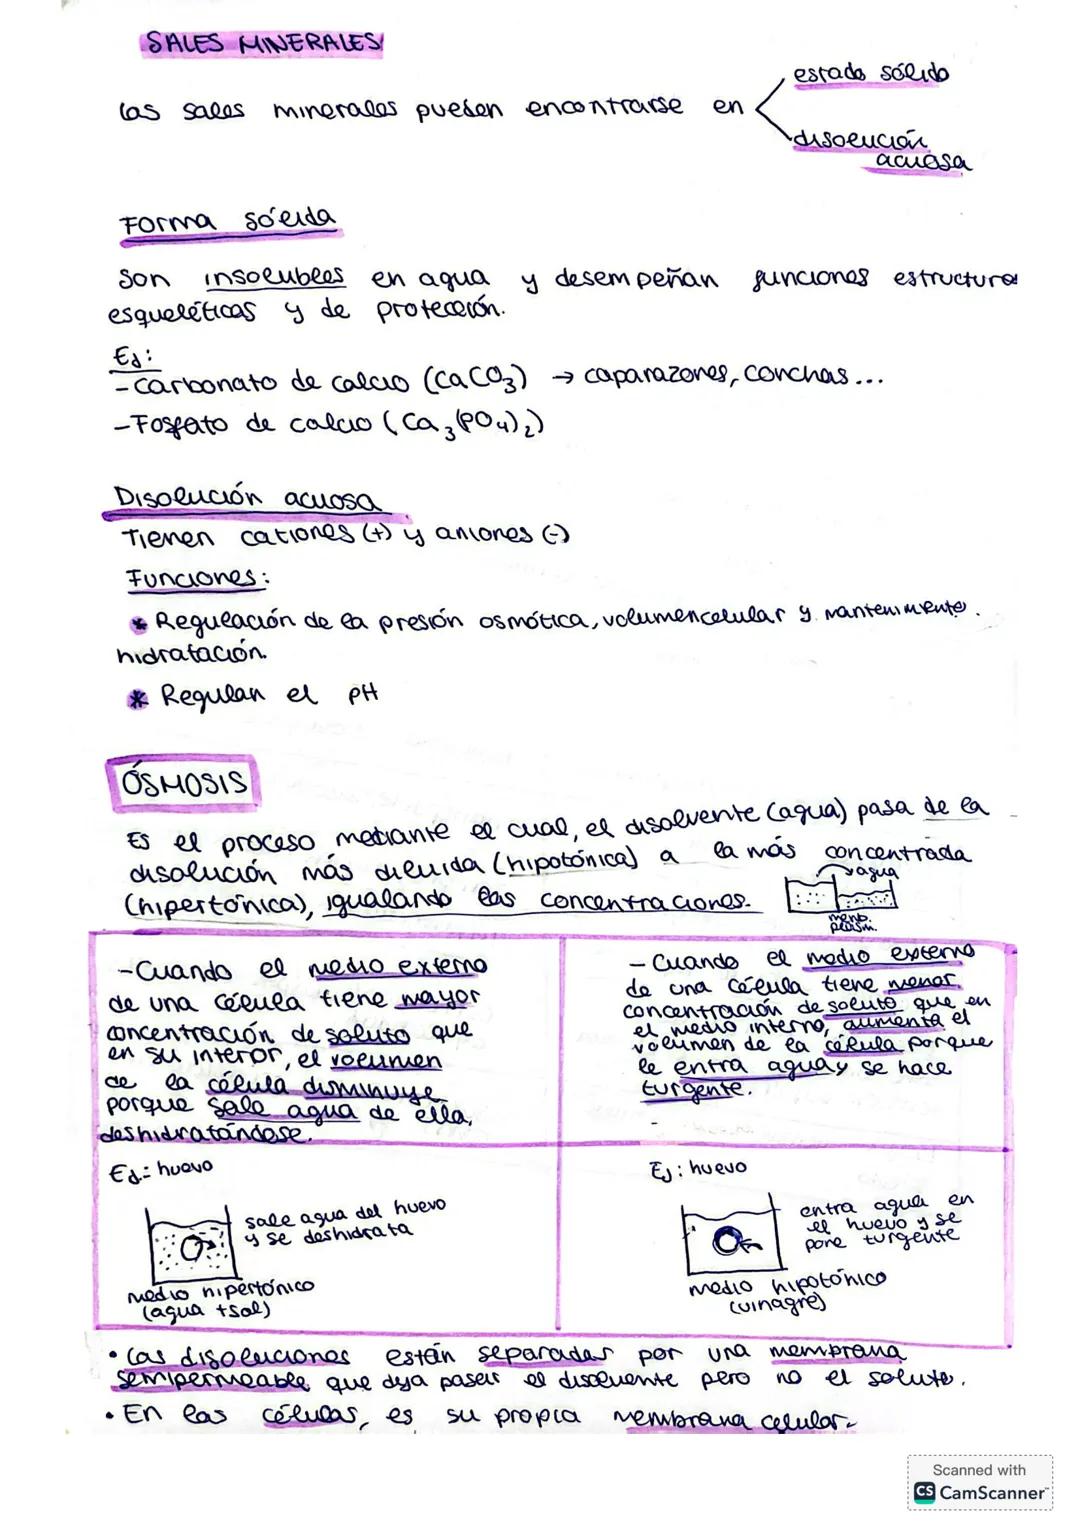 SALES MINERALES
las sales minerales pueden encontrarse en
estado sólido
disolución
acuosa
Forma sólida
Son insolubles en agua y desempeñan funciones estructura
esqueléticas y de protección.
Ej:
-Carbonato de calcio (CaCO3) → caparazones, conchas...
-Fosfato de calcio (Ca3(PO4)2)
Disolución acuosa
Tienen cationes (+) y aniones (-)
Funciones:
* Regulación de la presión osmótica, volumen celular y mantenimiento.
hidratación.
* Regulan el pH
ÓSMOSIS
Es el proceso mediante el cual, el disolvente (agua) pasa de la
disolución más diluida (hipotónica) a la más concentrada
(hipertónica), igualando las concentraciones.
agua
memb.
plasm.
-Cuando el medio externo
de una célula tiene mayor
concentración de soluto que
en su interior, el volumen
de la célula disminuye
porque sale agua de ella,
deshidratándose.
- Cuando el medio externo
de una célula tiene menor
concentración de soluto que en
el medio interno, aumenta el
volumen de la célula porque
le entra agua y se hace
turgente.
Ej: huevo
sale agua del huevo
y se deshidrata
medio hipertónico
(agua + sal)
Ej: huevo
entra agua en
el huevo y se
pone turgente
medio hipotónico
(vinagre)
• Las disoluciones están separadas por una membrana
semipermeable que deja pasar el disolvente pero no el soluto.
• En las células, es su propia membrana celular.
Scanned with
CS CamScanner